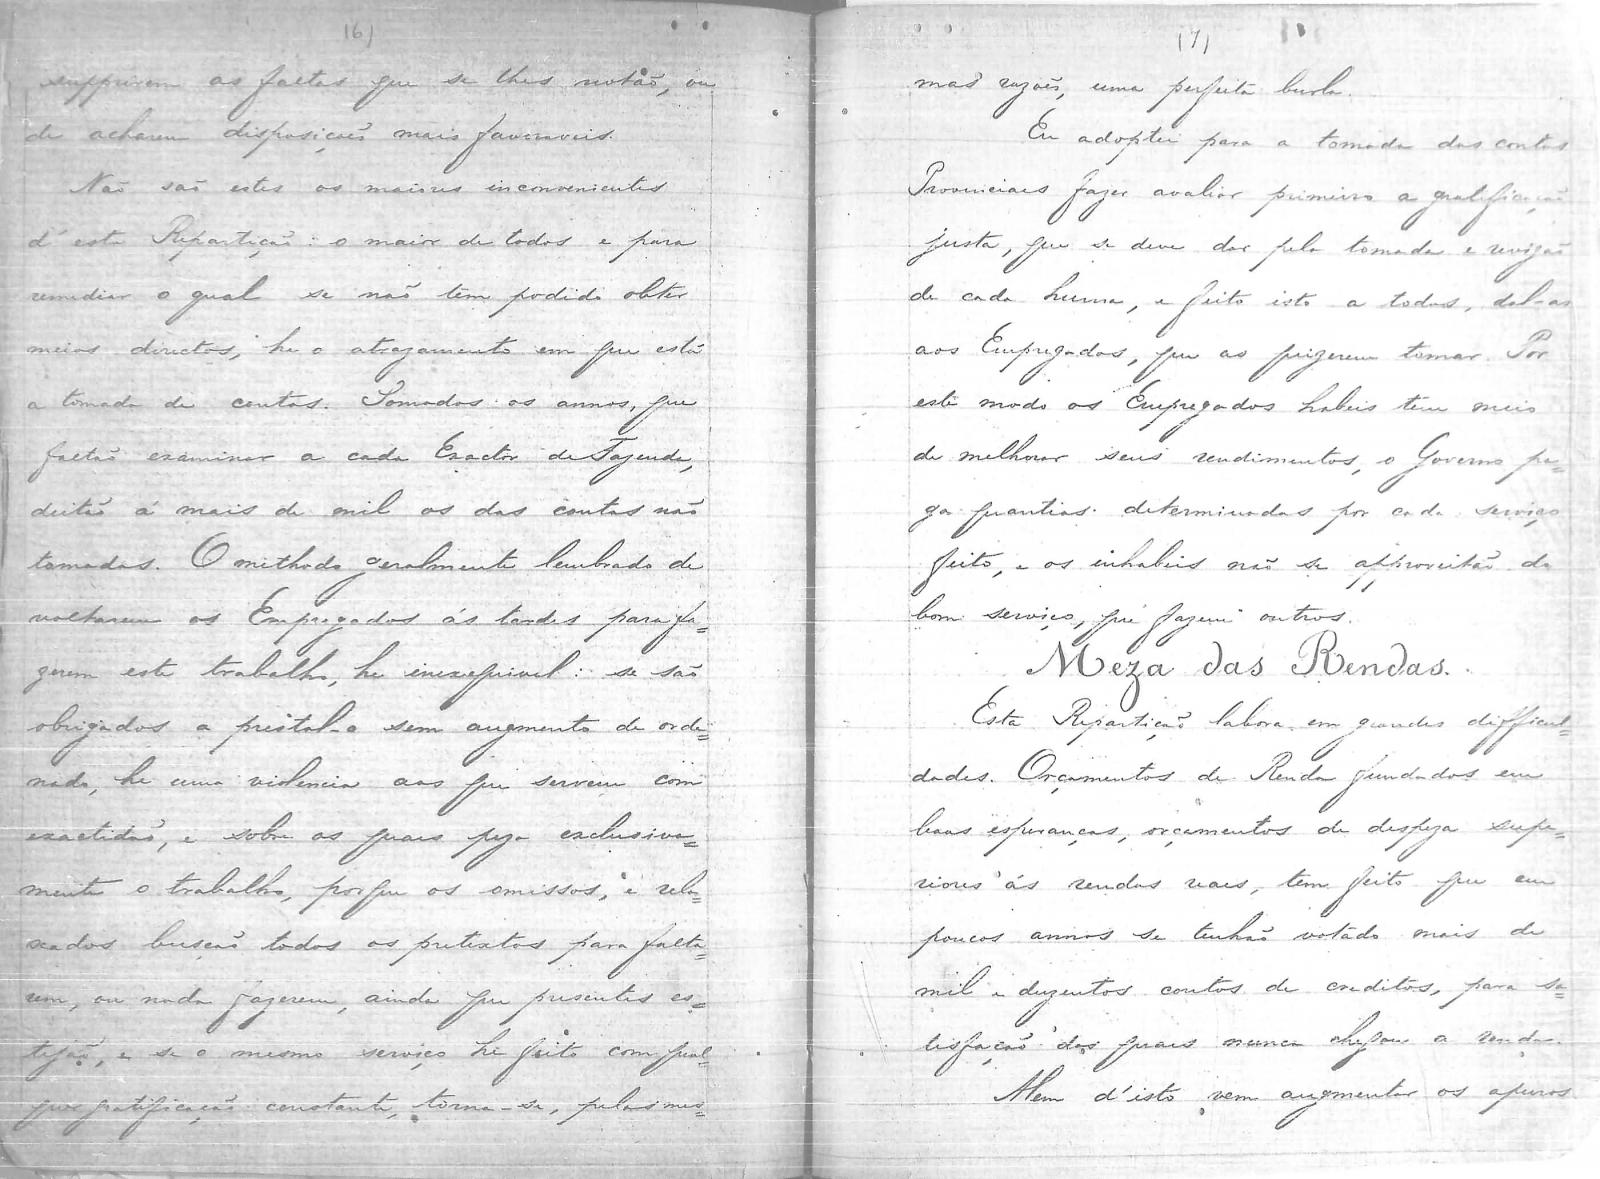 (6)
supprirem as faltas que se lhes notão, ou
de acharem disposições mais favoraveis.
Não são estes os maiores inconvenientes
d'esta Repartição: o maior de todos e para
remediar o qual se não tem podido obter
meios directos, he o atrazamento em que está
a tomada de contas. Somados os annos, que
faltão examinar a cada Exactor de Fazenda,
deitão á mais de mil os das contas não
tomadas. O methodo geralmente lembrado de
voltarem os Empregados ás tardes para fa=
zerem este trabalho, he inexequivel: se são
obrigados a prestal-o sem augmento de orde=
nado, he uma violencia aos que servem com
exactidão, e sobre os quaes peza exclusiva=
mente o trabalho, porque os omissos, e rela=
xados buscão todos os pretextos para falta=
rem, ou nada fazerem, ainda que presentes es=
tejão, e se o mesmo serviço he feito com qual=
quer gratificação constante, torna-se, pelas mes=
(7)
mas razões, uma perfeita burla.
Eu adoptei para a tomada das contas
Provinciaes fazer avaliar primeiro a gratificação
justa, que se deve dar pela tomada e revizão
de cada huma, e feito isto a todas, dal-as
aos Empregados, que as quizerem tomar. Por
este modo os Empregados habeis tem meio
de melhorar seus rendimentos, o Governo pa=
ga quantias determinadas por cada serviço
feito, e os inhabeis não se approveitão do
bom serviço, que fazem outros.
Meza das Rendas.
Esta Repartição labora em grandes difficul=
dades. Orçamentos de Renda fundados em
boas esperanças, orçamentos de despeza supe=
riores ás rendas reaes, tem feito que em
poucos annos se tenhão votado mais de
mil e duzentos contos de creditos, para sa=
tisfação dos quaes nunca chegou a renda.
Alem d'isto vem augmentar os apuros